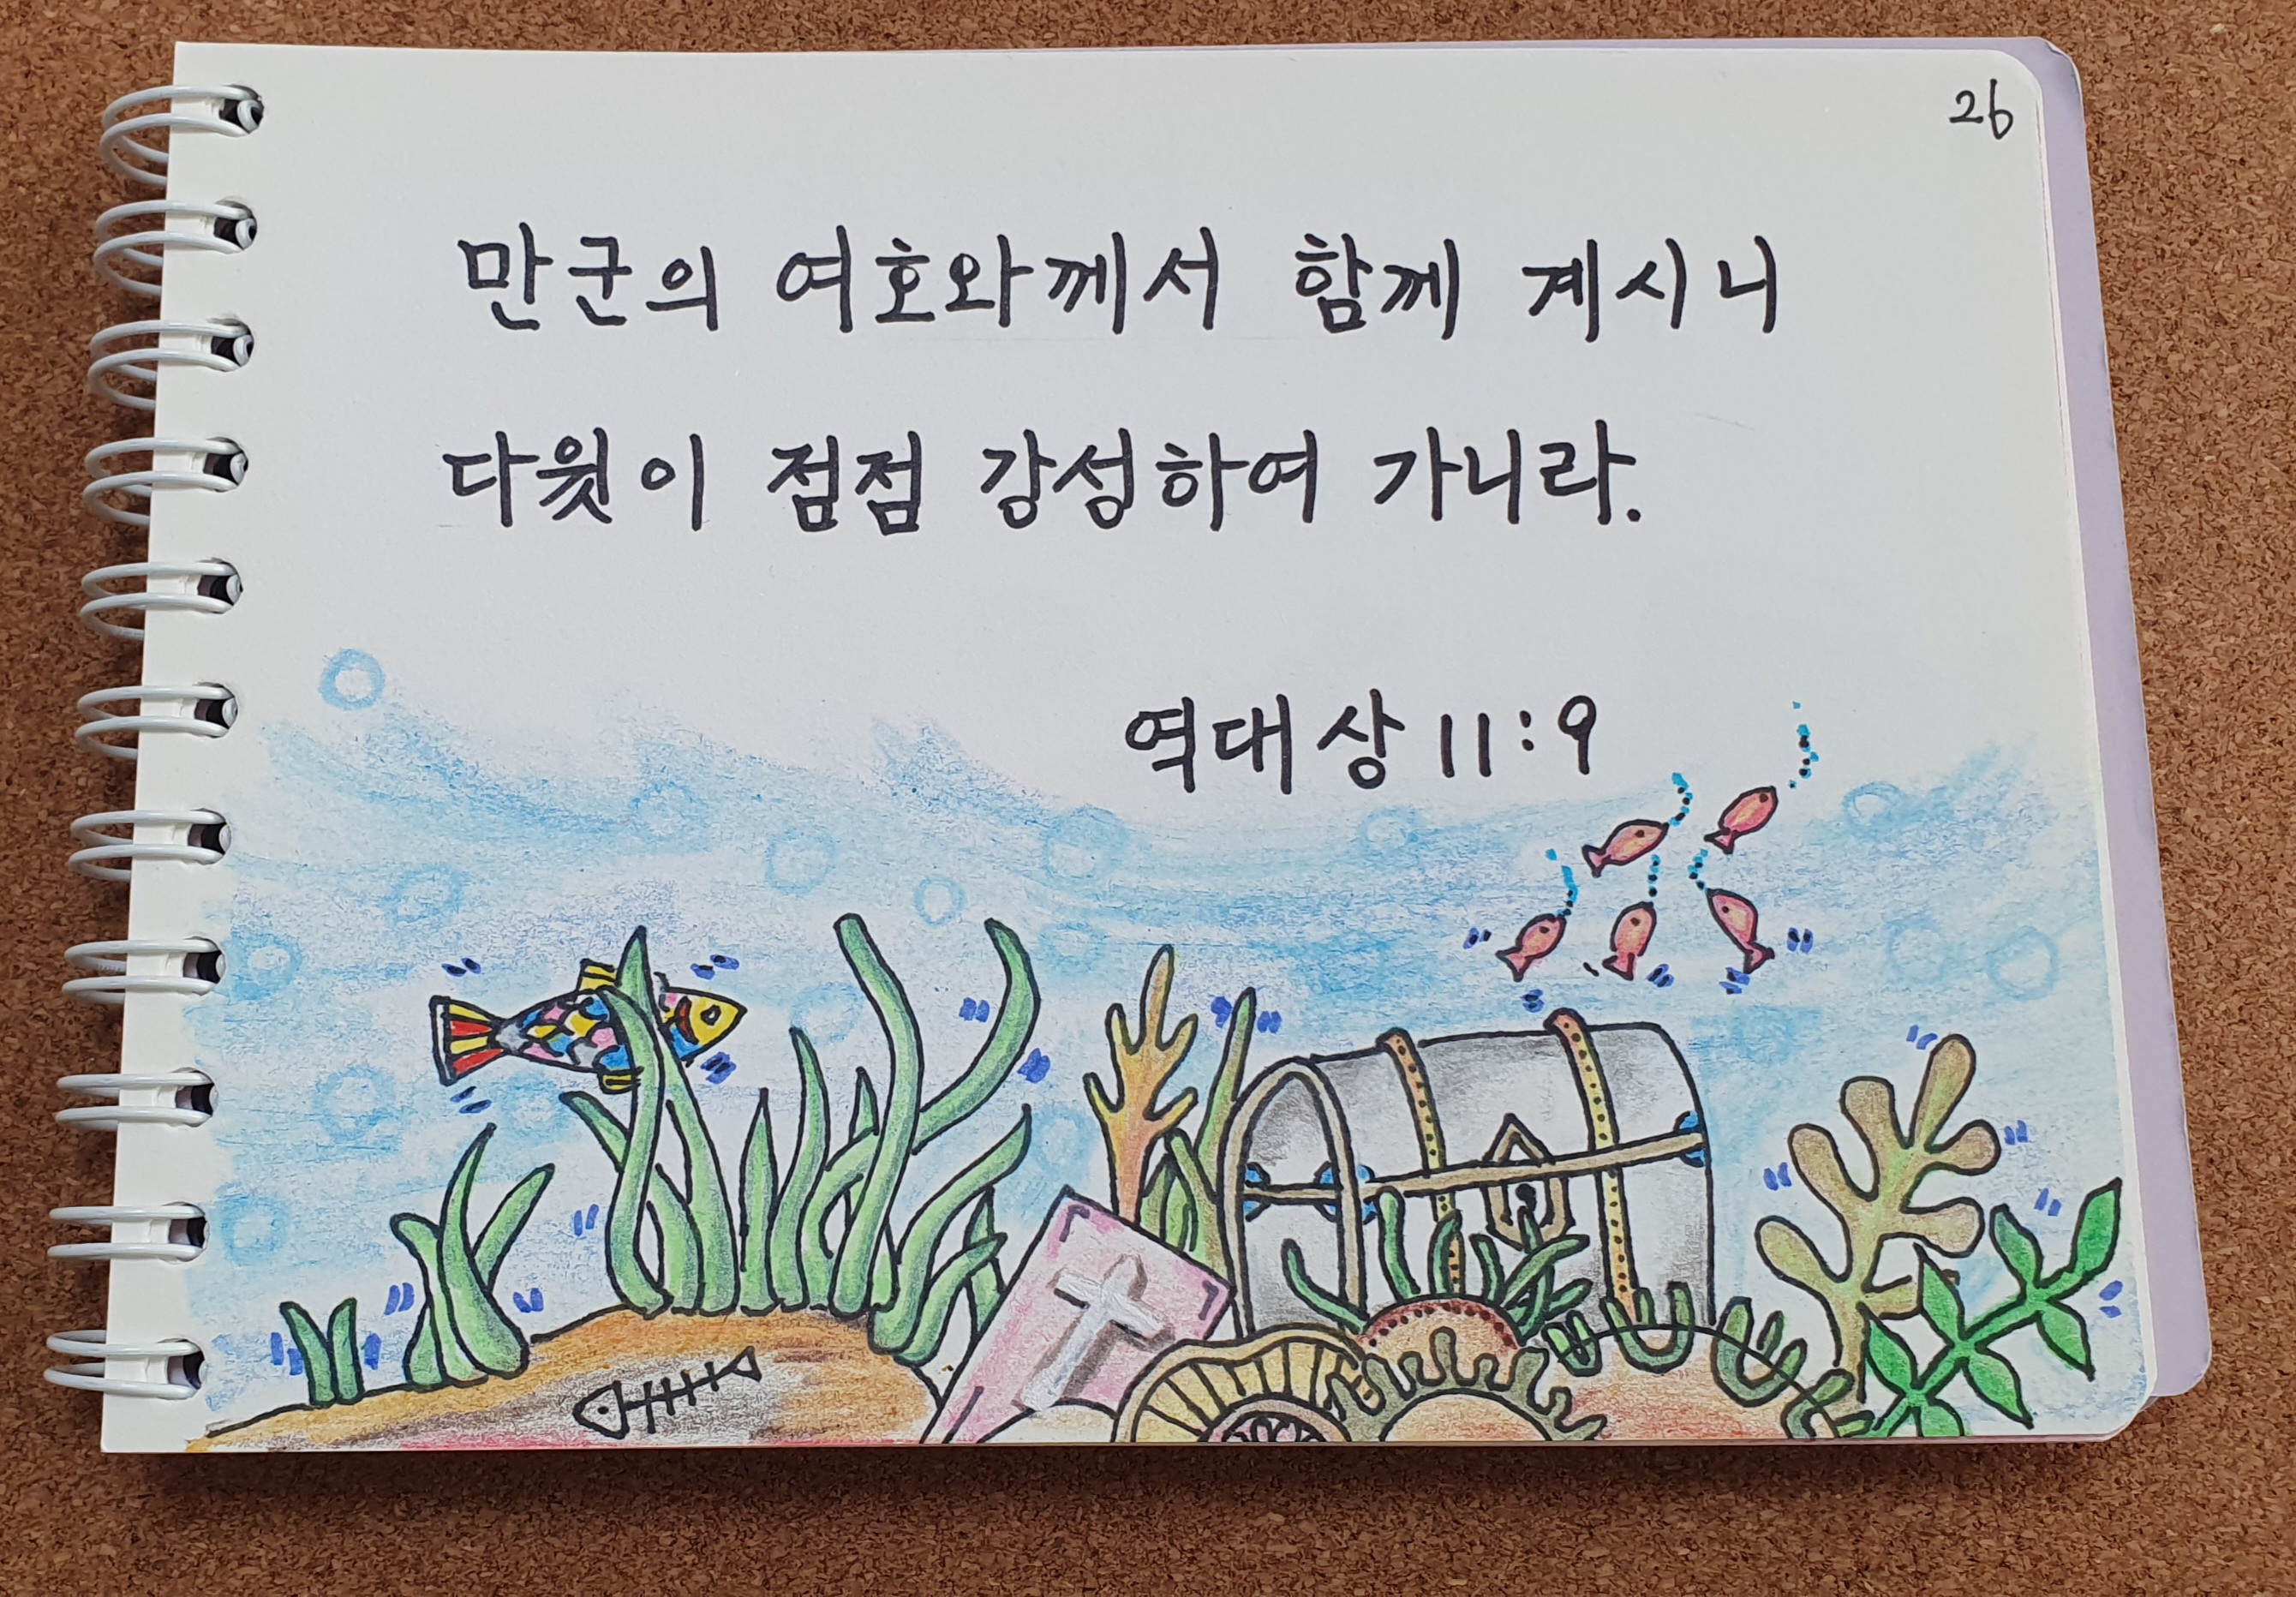 26
만군의 여호와께서 함께 계시니
다윗이 점점 강성하여 가니라.
역대상 11:9